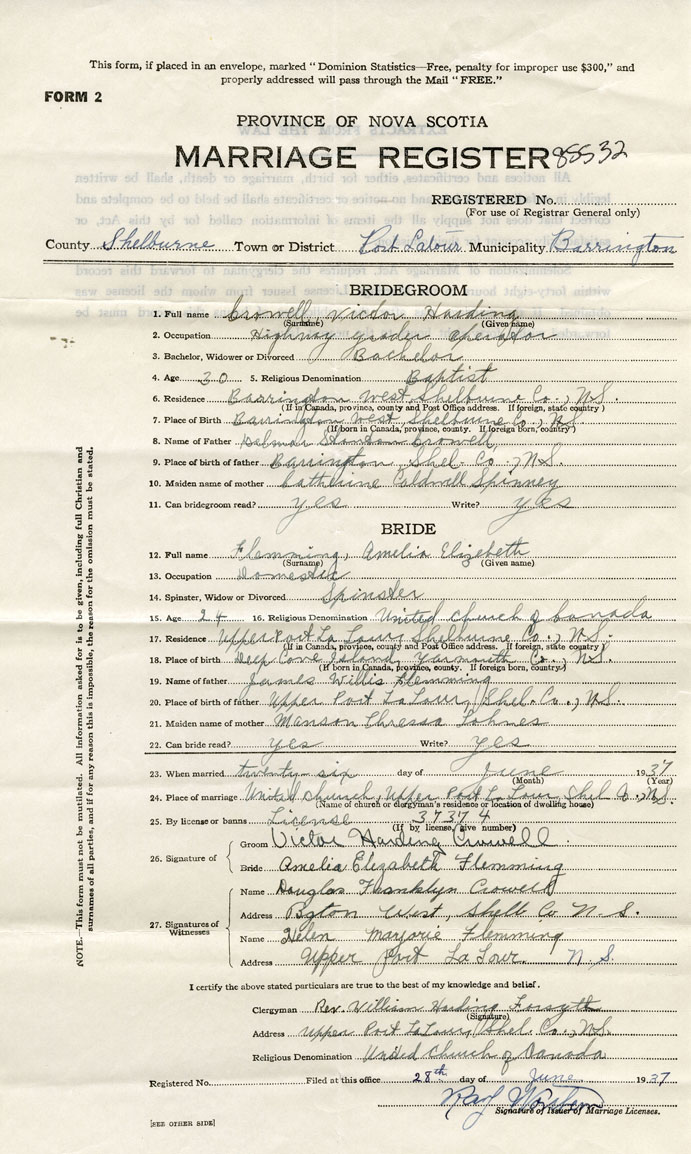 This form, if placed in an envelope, marked "Dominion Statistics—Free, penalty for improper use $300," and
properly addressed will pass through the Mail "FREE."
FORM 2
PROVINCE OF NOVA SCOTIA
MARRIAGE REGISTER 85532
REGISTERED No.
(For use of Registrar General only)
County Shelburne Town or District Port Latour Municipality Barrington
BRIDEGROOM
1. Full name Crowell Victor Harding
(Surname) (Given name)
2. Occupation Highway grader operator
3. Bachelor, Widower or Divorced Bachelor
4. Age 30 5. Religious Denomination Baptist
6. Residence Barrington West, Shelburne Co., N.S.
(If in Canada, province, county and Post Office address. If foreign, state country)
7. Place of Birth Barrington West, Shelburne Co., N.S.
(If born in Canada, province, county. If foreign born, country)
8. Name of Father Delmar Stanton Crowell
9. Place of birth of father Barrington, Shel. Co., N.S.
10. Maiden name of mother Catherine Coldwell Spinney
11. Can bridegroom read? yes Write? yes
BRIDE
12. Full name Flemming, Amelia Elizebeth
(Surname) (Given name)
13. Occupation Domestic
14. Spinster, Widow or Divorced Spinster
15. Age 24 16. Religious Denomination United Church of Canada
17. Residence Upper Port La Tour, Shelburne Co., N.S.
(If in Canada, province, county and Post Office address. If foreign, state country)
18. Place of birth Deep Cove Island, Yarmouth Co., N.S.
(If born in Canada, province, county. If foreign born, country)
19. Name of father James Willis Flemming
20. Place of birth of father Upper Port LaTour, Shel. Co., N.S.
21. Maiden name of mother Manson Thressa
22. Can bride read? yes Write? yes
23. When married twenty six day of June 1937
(Month) (Year)
24. Place of marriage United Church, Upper Port La Tour, Shel. Co., N.S.
(Name of church or clergyman's residence or location of dwelling house)
25. By license or banns License 37374
(If by license, give number)
26. Signature of
Groom Victor Harding Crowell
Bride Amelia Elizabeth Flemming
27. Signatures of Witnesses
Name Douglas Franklyn Crowell
Address Bgton West, Shelb Co N.S.
Name Helen Marjorie Flemming
Address Upper Port La Tour N.S.
I certify the above stated particulars are true to the best of my knowledge and belief.
Clergyman Rev. William Harding Forsyth
(Signature)
Address Upper Port LaTour, Shel. Co., N.S.
Religious Denomination United Church of Canada
Registered No. Filed at this office 28th day of June 1937
Signature of Issuer of Marriage Licenses.
[SEE OTHER SIDE]
NOTE.—This form must not be mutilated. All information asked for is to be given, including full Christian and
surnames of all parties, and if for any reason this is impossible, the reason for the omission must be stated.